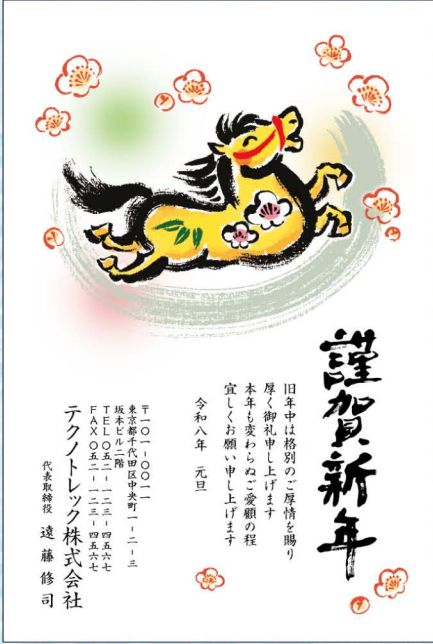 謹賀新年
旧年中は格別のご厚情を賜り
厚く御礼申し上げます
本年も変わらぬご愛顧の程
宜しくお願い申し上げます
令和八年　元旦
〒一〇一-〇〇一一
東京都千代田区中央町一-二-三
坂本ビル二階
ＴＥＬ〇五二-一二三-四五六七
ＦＡＸ〇五二-一二三-四五六七
テクノトレック株式会社
代表取締役　遠藤修司